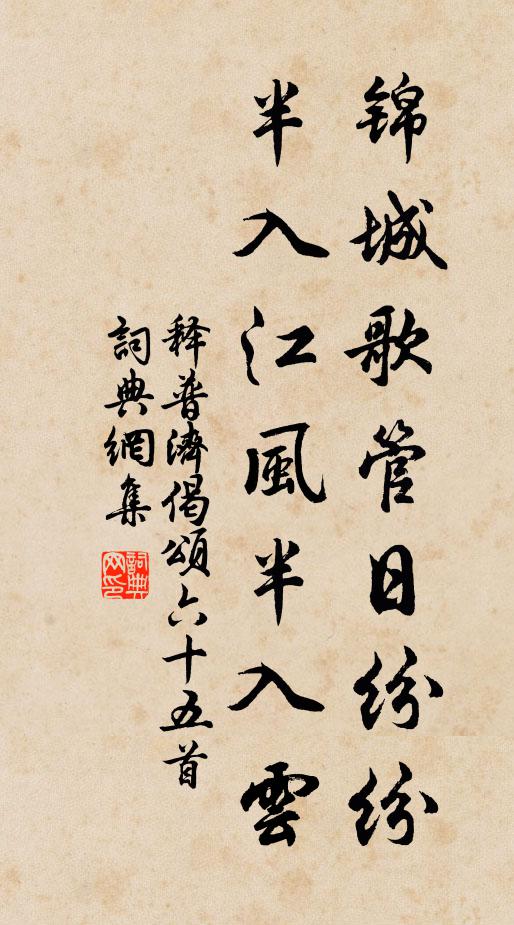 锦城歌管日纷纷
半入江風半入雲
释普濟偈頌六十五首
詞典網集
詞典网印